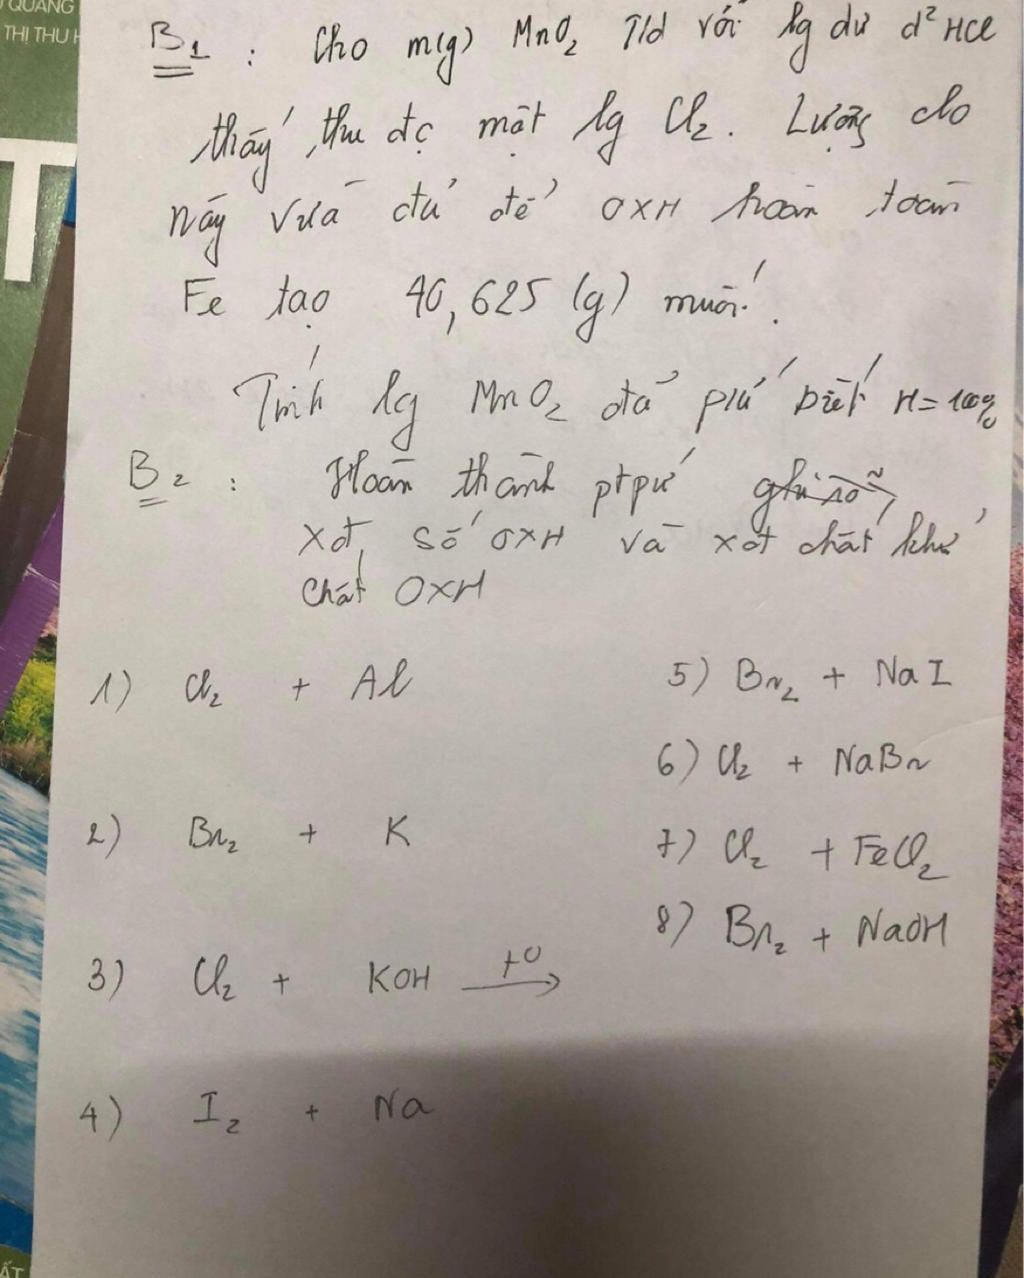 QUANG
THỊ THU H
T
B1 : Cho m(g) MnO2 T/d với lg dư d² HCl
thấy thu đc một lg Cl2. Lượng clo
này vừa đủ để OXH hoàn toàn
Fe tạo 40,625 (g) muối.
Tính lg MnO2 đã pứ biết H = 100%
B2 : Hoàn thành ptpứ ghi rõ,
xđ số OXH và xđ chất khử
chất OXH
1) Cl2 + Al
5) Br2 + NaI
6) Cl2 + NaBr
2) Br2 + K
7) Cl2 + FeCl2
8) Br2 + NaOH
3) Cl2 + KOH t0→
4) I2 + Na
ẤT